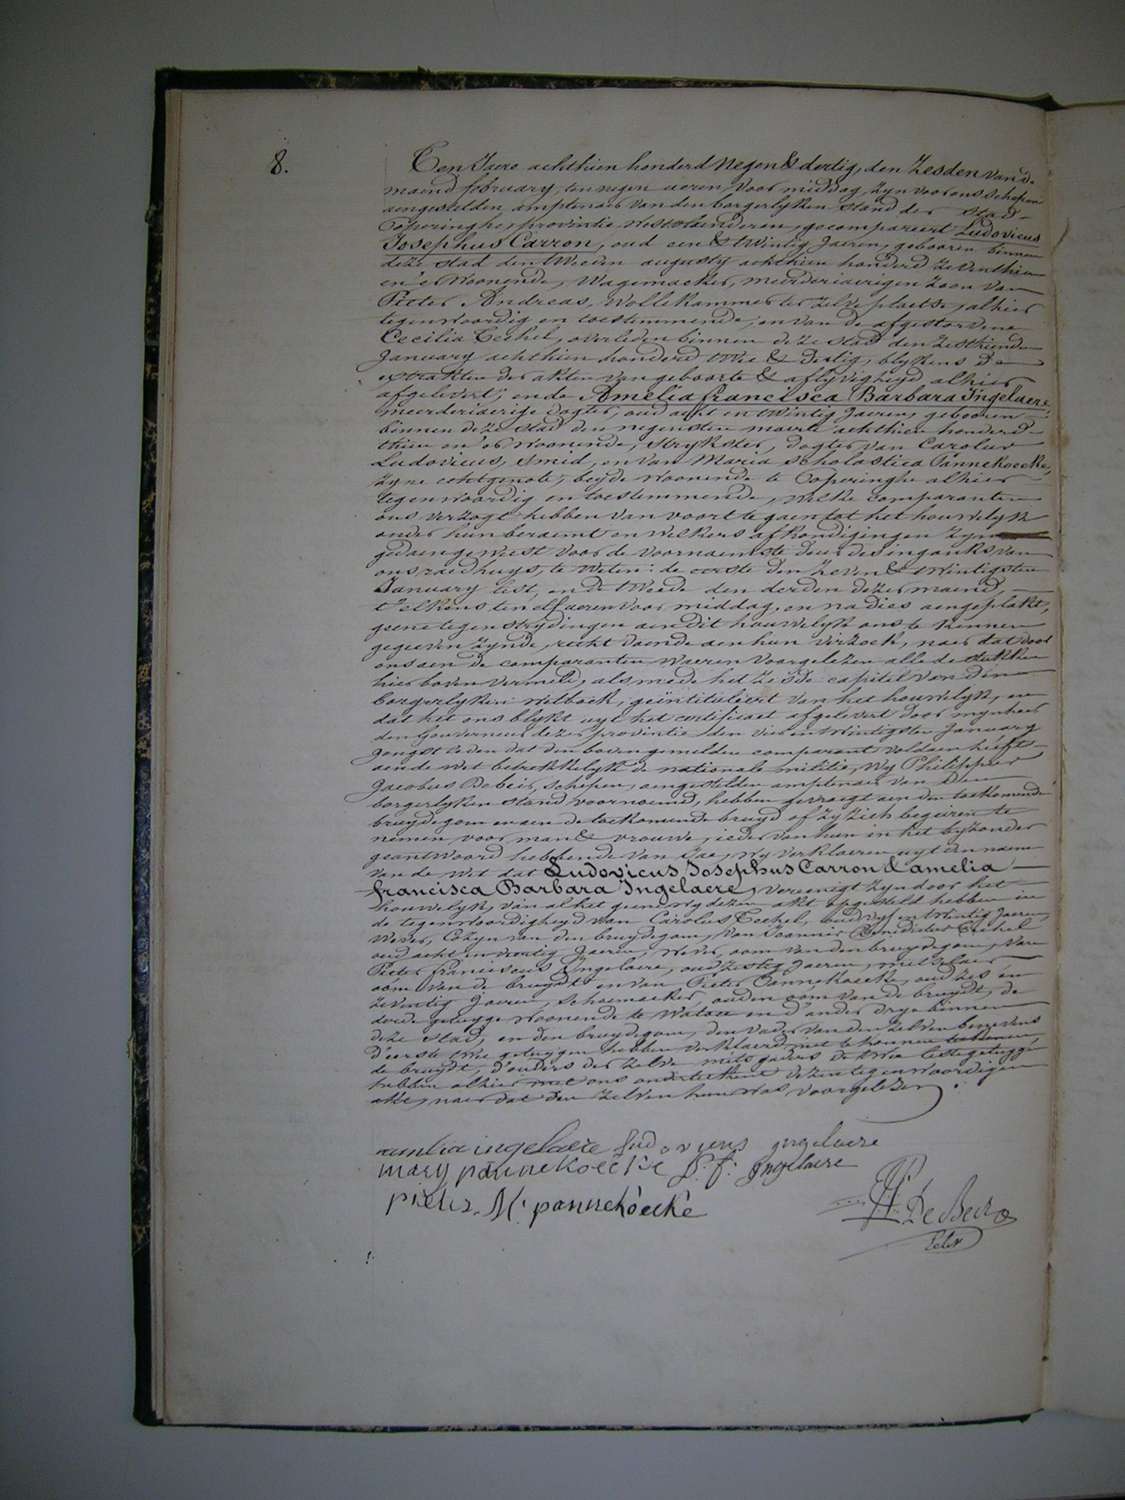 8.
Ten Jaere achthien honderd negen & dertig, den zesden van de
maend february, ten negen ueren voor middag, zyn voor ons schepen
aengestelden amptenaer van den borgerlyken stand der Stad
Poperinghe, provintie Westvlaenderen, gecompareert Ludovicus
Josephus Carron, oud een & twintig Jaeren, gebooren binnen
deze stad den augusty achthien honderd zeventhien
en er woonende, Wagemaeker, meerderjaerigen zoon van
Pieter Andreas, Wollekammer ter zelve plaetse, alhier
tegenwoordig en toestemmende, en van de afgestorvene
Cecilia Techel, overleden binnen deze stad den zesthienden
January achthien honderd drie & dertig, blykens d'
extrakten der akten van geboorte & aflyvigheyd alhier
afgelevert; ende Amelia francisca Barbara Ingelaere,
meerderjaerige dogter, oud acht en twintig Jaeren, gebooren
binnen deze stad den negensten maerte achthien honderd
thien en er woonende, Strykster, dogter van Carolus
Ludovicus, smid, en van Maria Scholastica Pannekoecke,
zyne echtgenote, beyde woonende te Poperinghe alhier
tegenwoordig en toestemmende, welke comparanten
ons verzogt hebben van voort te gaen tot het houwelyk
onder hun beraemt en welkers afkondigingen zyn
gedaen geweest voor de voornaemste deur des ingangs van
ons raedhuys, te weten: de eerste den zeven & twintigsten
January lest, en de tweede den derden dezer maend,
t'elkens ten elf ueren voor middag, en na dies aengeplakt,
geene tegenstrydingen aen dit houwelyk ons te kennen
gegeeven zynde, recht doende aen hun verzoek, naer dat door
ons aen de comparanten waeren voorgelezen alle de stukken
hier boven vermeld, als mede het zesde capitel van den
borgerlyken wetboek, geïntituleert van het houwelyk, en
dat het ons blykt uyt het certificaet afgelevert door mynheer
den Gouverneur dezer provintie den vier en twintigsten January
jongst leden dat den boven gemelden comparant voldaen heeft
aen de wet betrekkelyk de nationale militie, Wy Philippus
Jacobus Debeir, schepen, aengestelden amptenaer van den
borgerlyken stand voornoemd, hebben gevraegt aen den toekomende
bruydegom en aen de toekomende bruyd of zy zich begeeren te
nemen voor man & vrouwe, ieder van hun in het byzonder
geantwoord hebbende van Jae, wy verklaeren uyt den naem
van de wet dat Ludovicus Josephus Carron & amelia
francisca Barbara Ingelaere, vereenigt zyn door het
houwelyk, van al het geene wy dezen akt opgesteld hebben in
de tegenwoordigheyd van Carolus Techel, oud vyf en twintig Jaeren,
Wever, Cozyn van den bruydegom, van Joannes Benedictus Techel
oud acht en veertig Jaeren, Wever, oom van den bruydegom, van
Pieter franciscus Ingelaere, oud zestig Jaeren,
oom van de bruydt en van Pieter Pannekoecke, oud zes en
zeventig Jaeren, Schoemaeker, ouden oom van de bruydt, de
derde getuyge woonende te Watou en d'ander drye binnen
deze Stad, en den bruydegom, den vader van den zelven benevens
d'eerste twee getuygen hebben verklaerd niet te konnen
de bruydt, d'ouders der zelve mits gaders de twee leste getuygen
hebben alhier met ons onderteekent dezen tegenwoordigen
akt, naer dat den zelven hun was voorgelezen
amelia ingelaere Ludovicus Ingelaere
mary pannekoecke P. F. Ingelaere
pieter. M. pannekoecke
De Beir